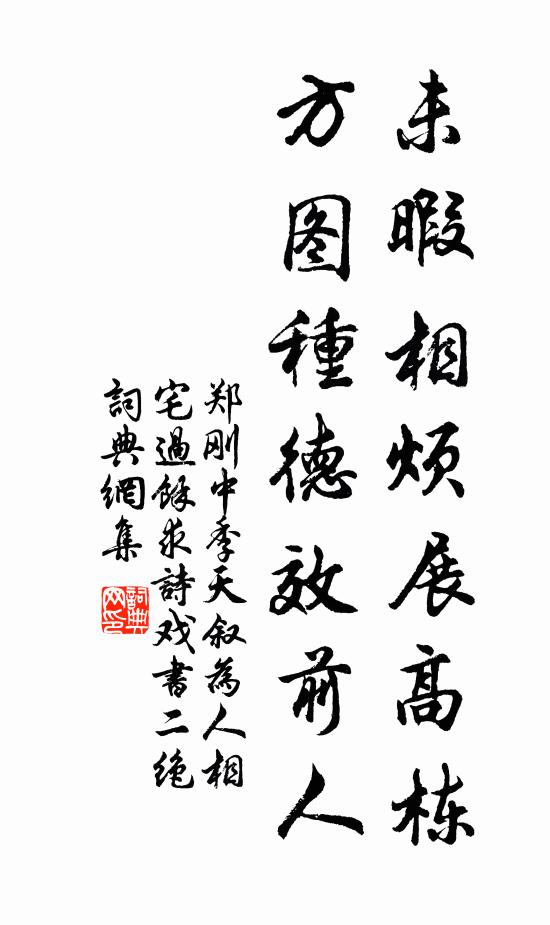 未暇相烦展高栋
方图種德效前人
郑刚中季天叙為人相
宅過餘求詩戏書二绝
詞典網集
詞典
网印